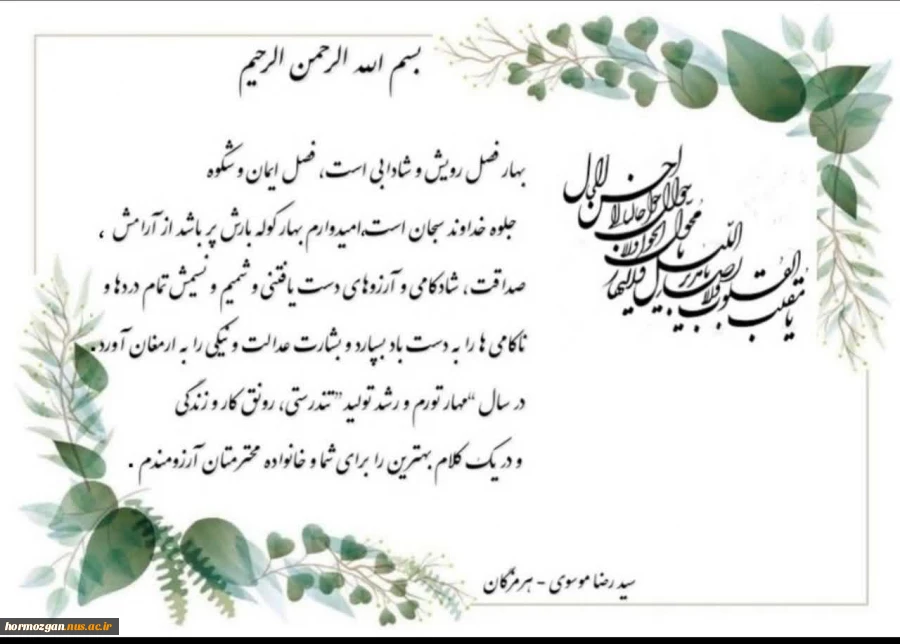 بسم الله الرحمن الرحیم
یا مقلب القلوب و الابصار
یا مدبر اللیل و النهار
یا محول الحول و الاحوال
حول حالنا الی احسن الحال
بهار فصل رویش و شادابی است، فصل ایمان و شکوه
جلوه خداوند سبحان است،امیدوارم بهار کوله بارش پر باشد از آرامش ،
صداقت ، شادکامی و آرزوهای دست یافتنی و شمیم و نسیمش تمام دردها و
ناکامی ها را به دست باد بسپارد و بشارت عدالت و نیکی را به ارمغان آورد.
در سال "مهار تورم و رشد تولید" تندرستی، رونق کار و زندگی
و در یک کلام بهترین را برای شما و خانواده محترمتان آرزومندم .
سید رضا موسوی - هرمزگان
hormozgan.nus.ac.ir